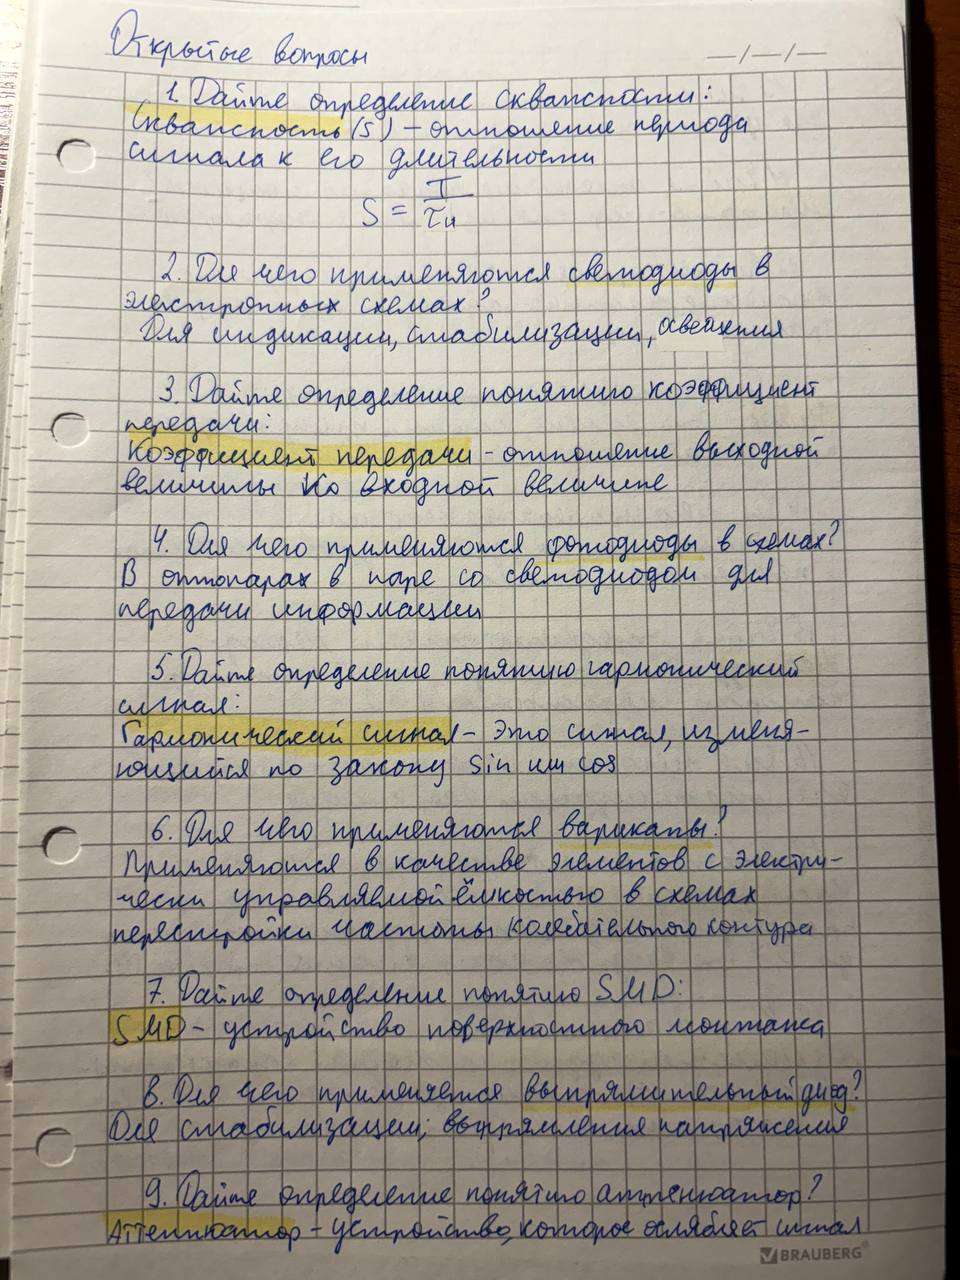 Открытые вопросы
—/—/—
1. Дайте определение скважности:
Скважность (S) – отношение периода
сигнала к его длительности
S = T/τи
2. Для чего применяются светодиоды в
электронных схемах?
Для индикации, стабилизации, освещения
3. Дайте определение понятию коэффициент
передачи:
Коэффициент передачи - отношение выходной
величины ко входной величине
4. Для чего применяются фотодиоды в схемах?
В оптопарах в паре со светодиодом для
передачи информации
5. Дайте определение понятию гармонический
сигнал:
Гармонический сигнал – это сигнал, изменя-
ющийся по закону sin или cos
6. Для чего применяются варикапы?
Применяются в качестве элементов с электри-
чески управляемой ёмкостью в схемах
перестройки частоты колебательного контура
7. Дайте определение понятию SMD:
SMD – устройство поверхностного монтажа
8. Для чего применяется выпрямительный диод?
Для стабилизации, выпрямления напряжения
9. Дайте определение понятию аттенюатор?
Аттенюатор – устройство, которое ослабляет сигнал
BRAUBERG®